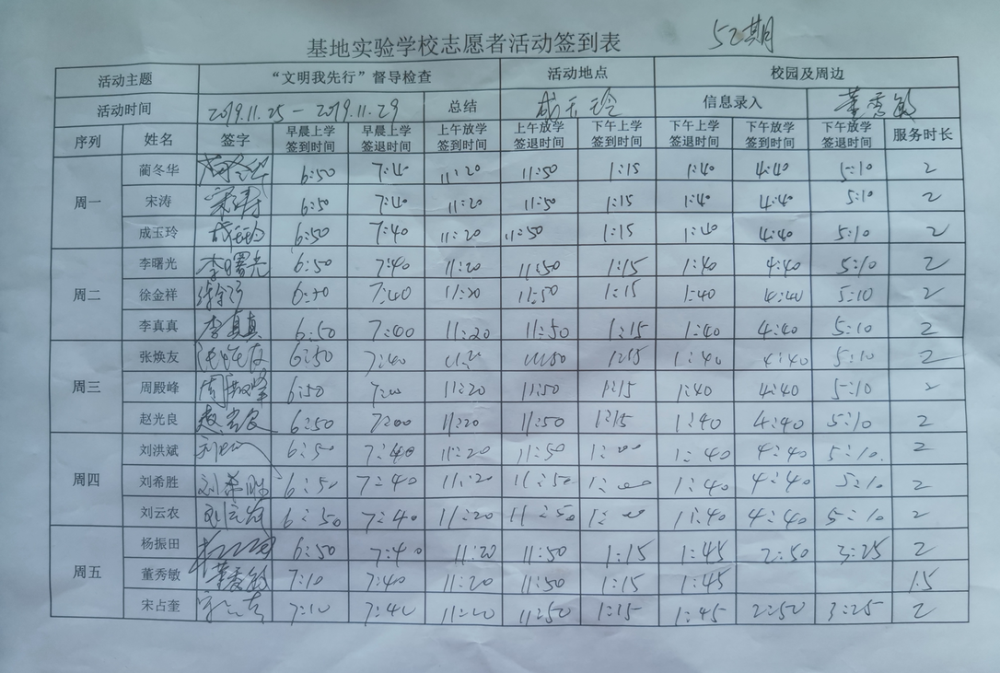 基地实验学校志愿者活动签到表 52期
活动主题 “文明我先行”督导检查 活动地点 校园及周边
活动时间 2019.11.25-2019.11.29 总结 成玉玲 信息录入 董秀敏
序列 姓名 签字 早晨上学签到时间 早晨上学签退时间 上午放学签到时间 上午放学签退时间 下午上学签到时间 下午上学签退时间 下午放学签到时间 下午放学签退时间 服务时长
周一 蔺冬华 6:50 7:40 11:20 11:50 1:15 1:40 4:40 5:10 2
宋涛 宋涛 6:50 7:40 11:20 11:50 1:15 1:40 4:40 5:10 2
成玉玲 成玉玲 6:50 7:40 11:20 11:50 1:15 1:40 4:40 5:10 2
周二 李曙光 李曙光 6:50 7:40 11:20 11:50 1:15 1:40 4:40 5:10 2
徐金祥 7:40 11:20 11:50 1:15 1:40 4:40 5:10 2
李真真 李真真 6:50 7:00 11:20 11:50 1:15 1:40 4:40 5:10 2
周三 张焕友 6:50 7:40 11:50 1:15 1:40 4:40 5:10 2
周殿峰 周殿峰 6:50 11:20 11:50 1:15 1:40 4:40 5:10 2
赵光良 赵光良 6:50 7:00 11:20 11:50 1:15 1:40 4:40 5:10 2
周四 刘洪斌 6:50 7:40 11:20 11:50 1:00 1:40 4:40 5:10 2
刘希胜 刘希胜 6:50 7:40 11:20 11:50 1:00 1:40 4:40 5:10 2
刘云农 刘云农 6:50 7:40 11:20 11:50 1:00 1:40 4:40 5:10 2
周五 杨振田 6:50 7:40 11:20 11:50 1:15 1:45 2:50 3:25 2
董秀敏 董秀敏 7:10 7:40 11:20 11:50 1:15 1:45 1.5
宋占奎 7:10 7:40 11:20 11:50 1:15 1:45 2:50 3:25 2